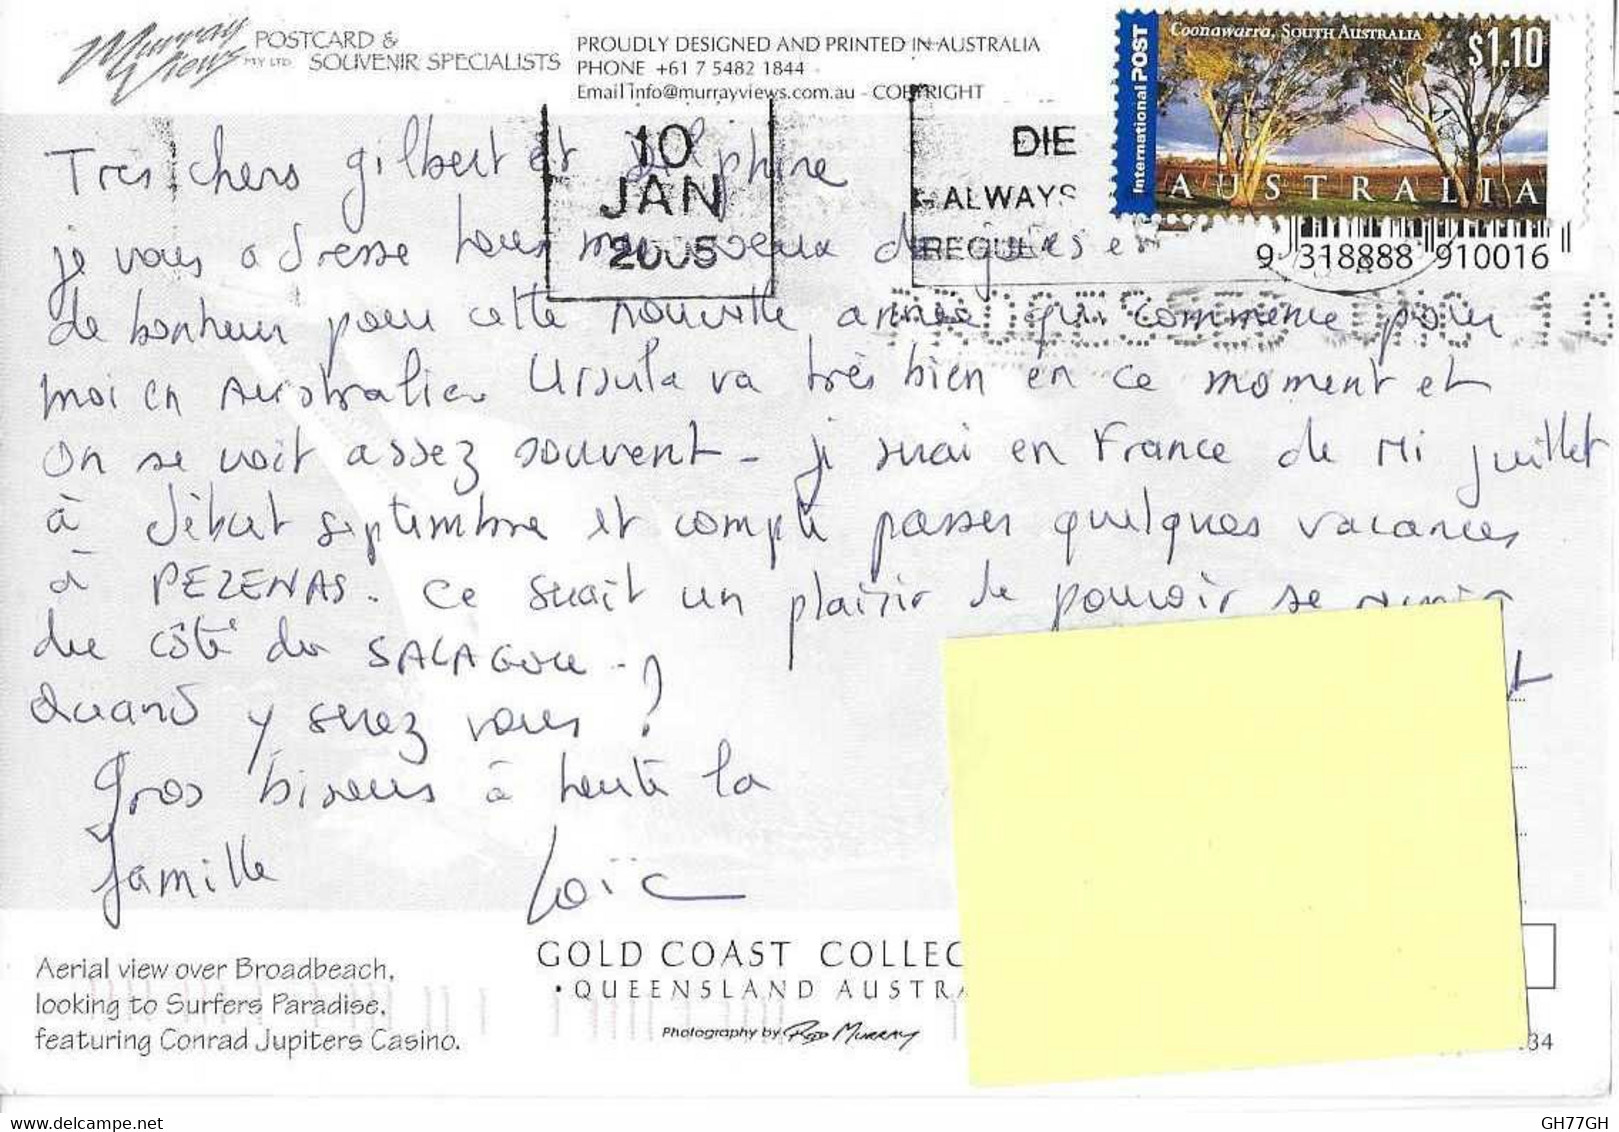 Murray Views PTY LTD
POSTCARD &
SOUVENIR SPECIALISTS
PROUDLY DESIGNED AND PRINTED IN AUSTRALIA
PHONE +61 7 5482 1844
Email info@murrayviews.com.au - COPYRIGHT
International POST
Coonawarra, SOUTH AUSTRALIA
$1.10
AUSTRALIA
10
JAN
2005
DIE
ALWAYS
9 318888 910016
Tres chers Gilbert et Delphine
je vous adresse tous mes voeux de joies et
de bonheur pour cette nouvelle année qui commence pour
moi en Australie. Ursula va très bien en ce moment et
on se voit assez souvent - je serai en France de Mi juillet
à début septembre et compte passer quelques vacances
à PEZENAS. Ce serait un plaisir de pouvoir se
du côté du SALAGOU - ?
Quand y serez vous ?
Gros bisous à toute la
famille Loïc
Aerial view over Broadbeach,
looking to Surfers Paradise,
featuring Conrad Jupiters Casino.
GOLD COAST COLLEC
• QUEENSLAND AUSTRA
Photography by Rod Murray
34
GH77GH